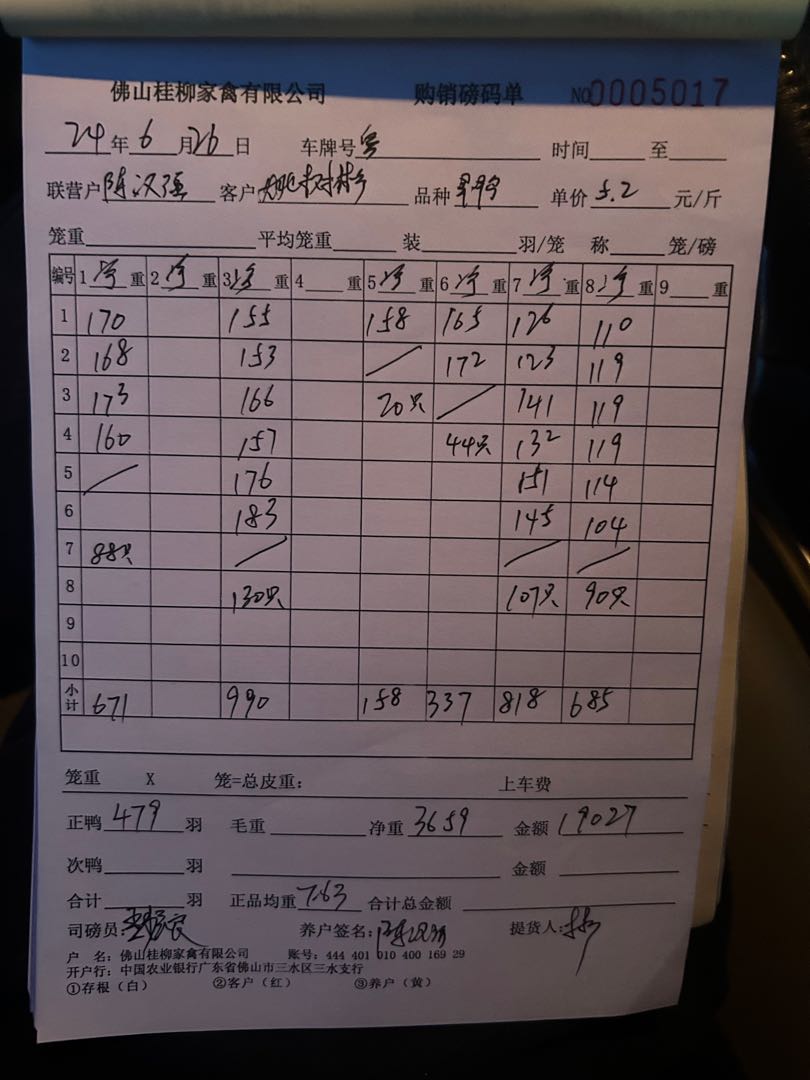 佛山桂柳家禽有限公司 购销磅码单 NO0005017
24年6月26日 车牌号粤 时间 至
联营户陈汉强 客户姚树彬 品种 单价5.2元/斤
笼重 平均笼重 装 羽/笼 称 笼/磅
编号 1 重 2 重 3 重 4 重 5 重 6 重 7 重 8 重 9 重
1 170 155 158 165 126 110
2 168 153 172 123 119
3 173 166 20只 141 119
4 160 157 44只 132 119
5 176 151 114
6 183 145 104
7 88只
8 130只 107只 90只
9
10
小计 671 990 158 337 818 685
笼重 X 笼=总皮重: 上车费
正鸭479羽 毛重 净重3659 金额19027
次鸭 羽 金额
合计 羽 正品均重7.63 合计总金额
司磅员: 养户签名: 提货人:
户 名: 佛山桂柳家禽有限公司 账号: 444 401 010 400 169 29
开户行: 中国农业银行广东省佛山市三水区三水支行
①存根(白) ②客户(红) ③养户(黄)